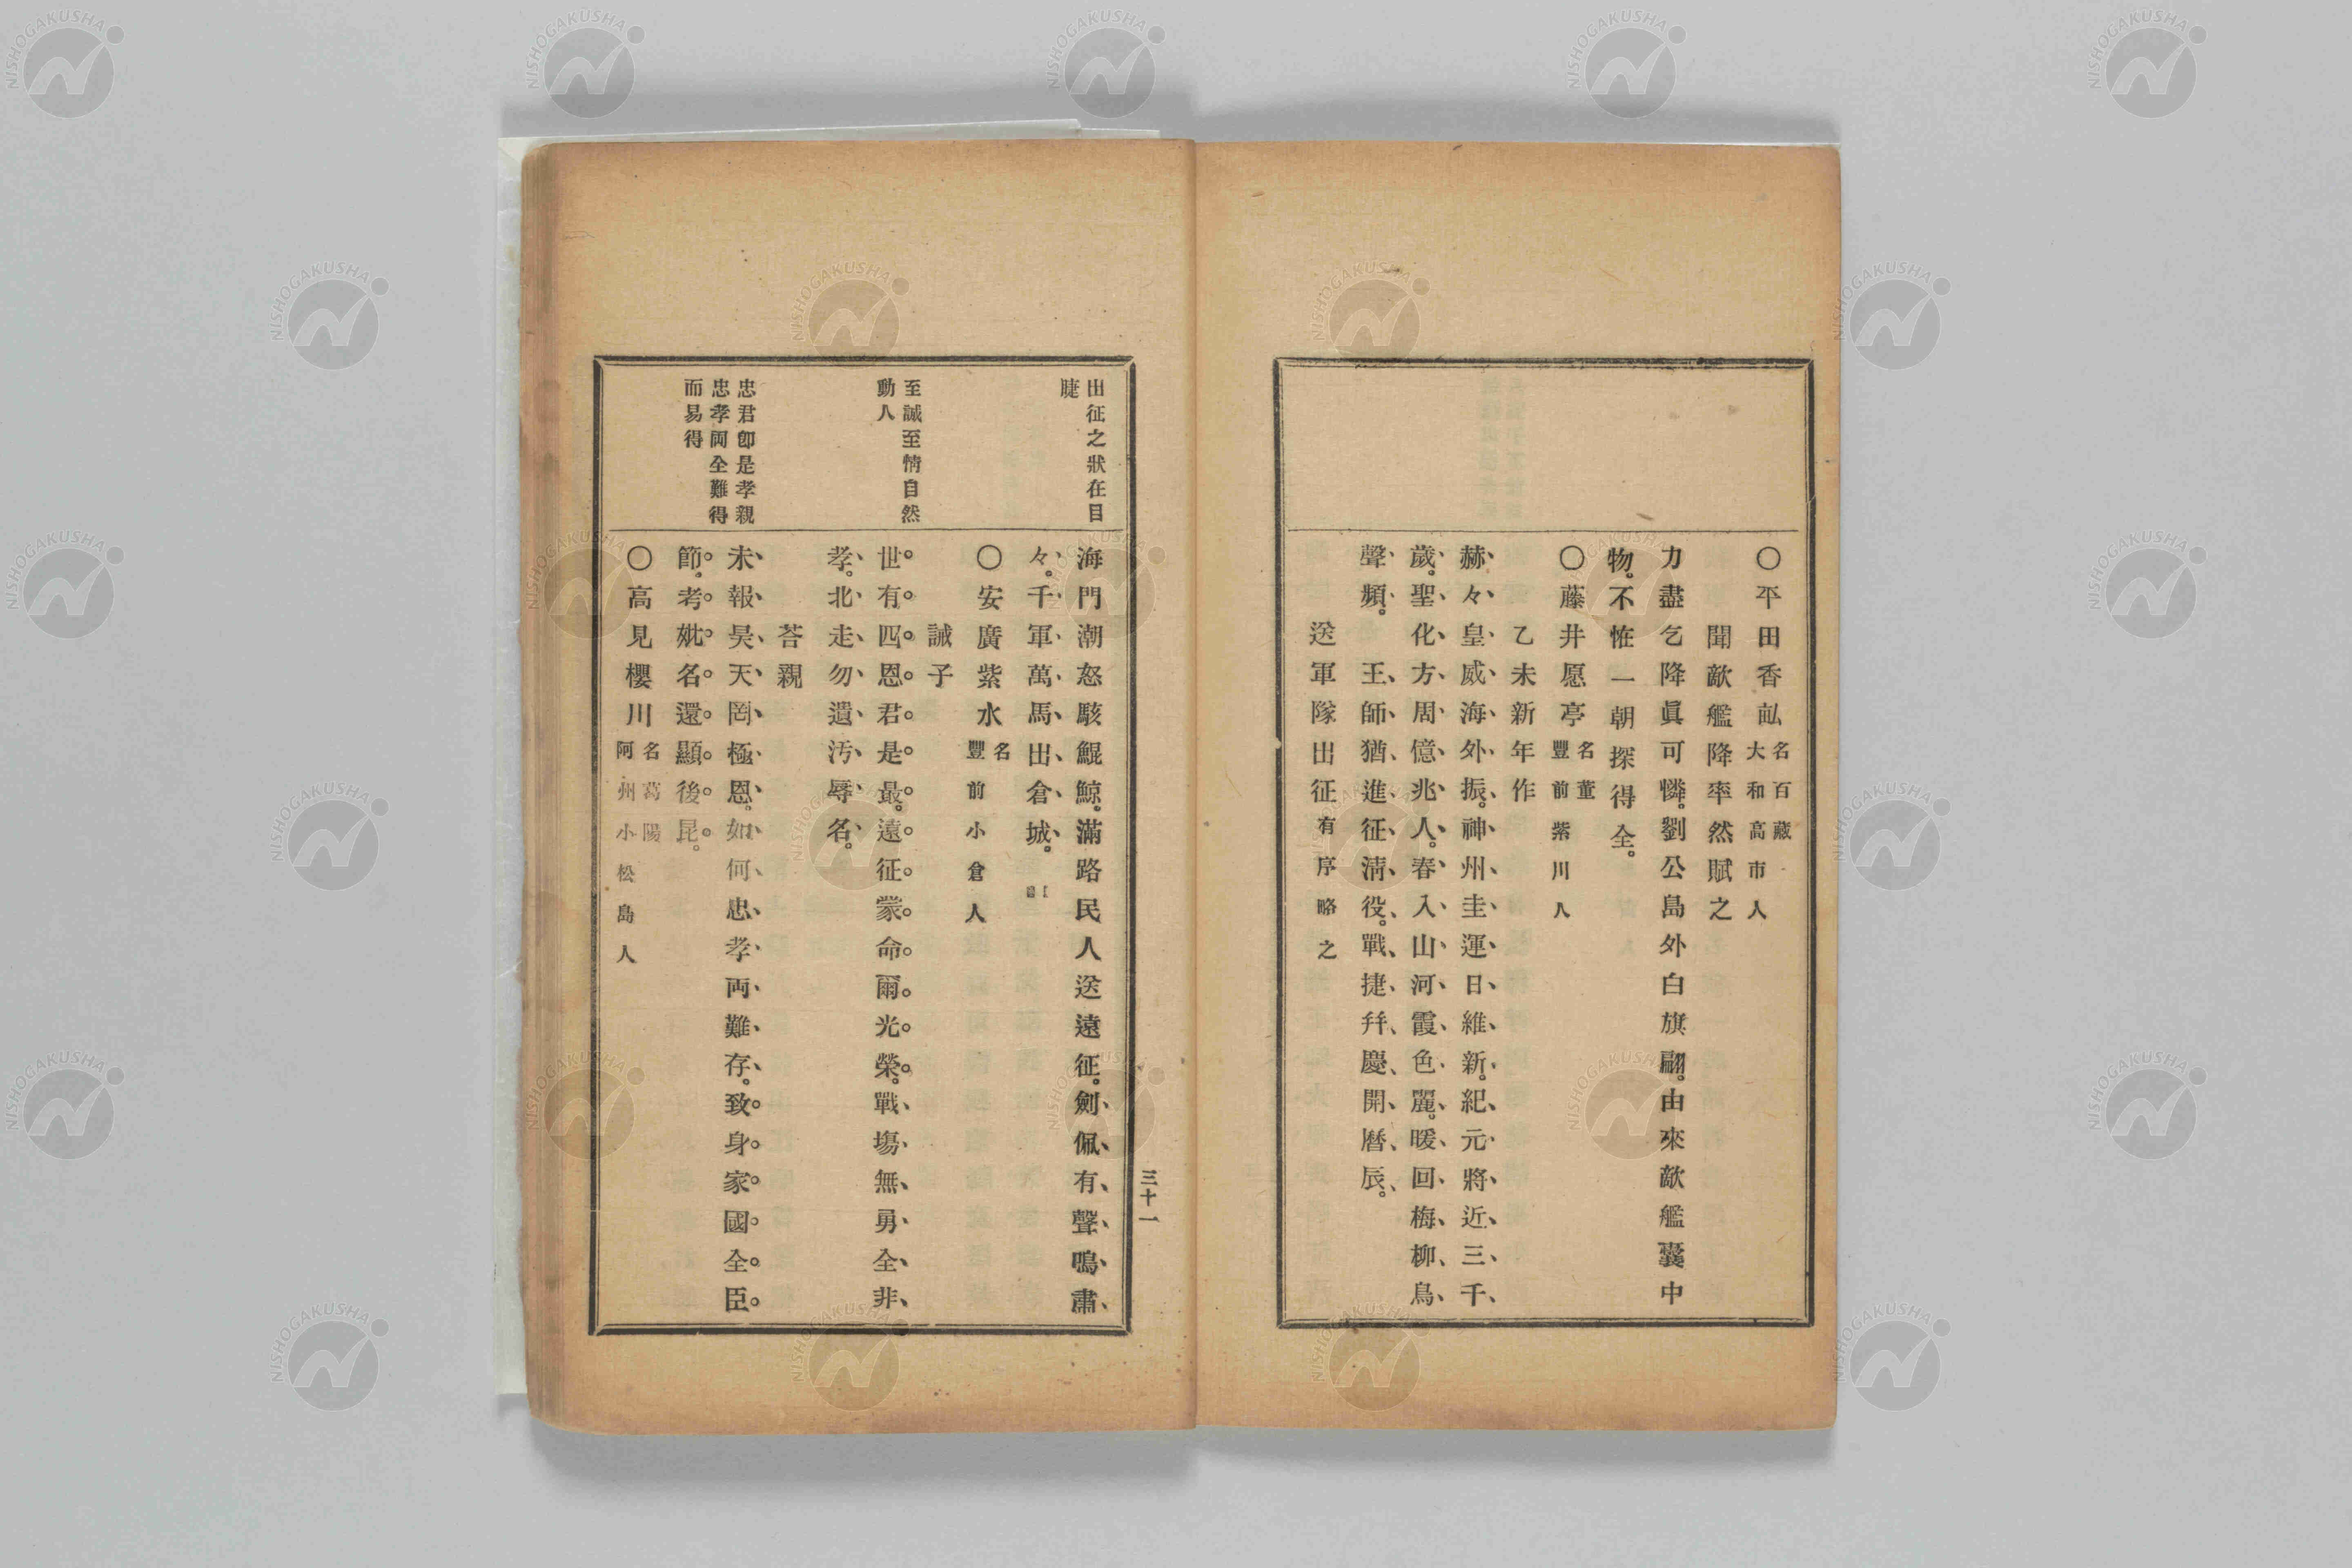 〇平田香畝 名百藏 大和高市人
聞敵艦降率然賦之
力盡乞降眞可憐。劉公島外白旗翩。由來敵艦囊中
物。不恠一朝探得全。
〇藤井愿亭 名董 豐前紫川人
乙未新年作
赫々皇威海外振。神州圭運日維新。紀元將近三千
歲。聖化方周億兆人。春入山河霞色麗。暖回梅柳鳥
聲頻。王師猶進征淸役。戰捷幷慶開曆辰。
送軍隊出征 有序略之
三十一
出征之狀在目
睫
海門潮怒駭鯤鯨。滿路民人送遠征。劍佩有聲鳴肅
々。千軍萬馬出倉城。
〇安廣紫水 名 豐前小倉人
誡子
至誠至情自然
動人
世有四恩君是最。遠征蒙命爾光榮。戰塲無勇全非
孝。北走勿遺汚辱名。
荅親
忠君卽是孝親
忠孝兩全難得
而易得
未報昊天罔極恩。如何忠孝兩難存。致身家國全臣
節。考妣名還顯後昆。
〇高見櫻川 名葛陽 阿州小松島人
NISHOGAKUSHA